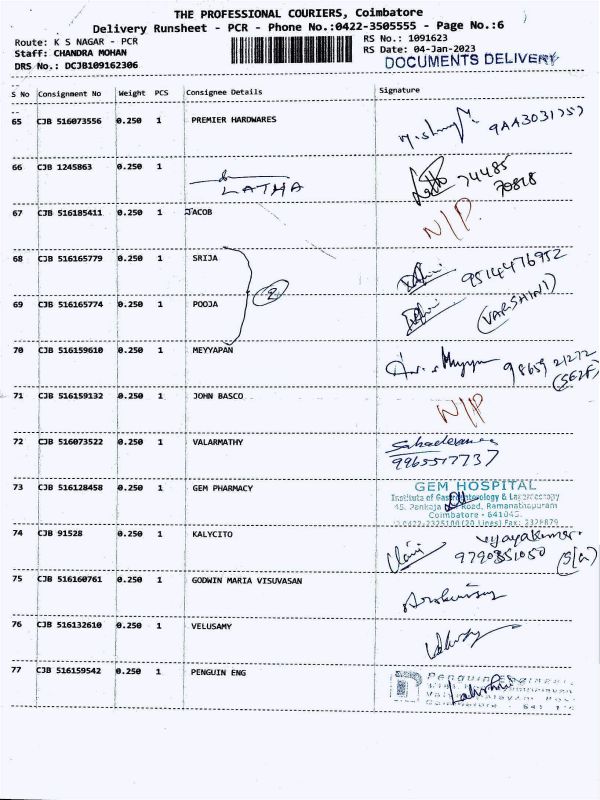 THE PROFESSIONAL COURIERS, Coimbatore
Delivery Runsheet - PCR - Phone No.:0422-3505555 - Page No.:6
Route: K S NAGAR - PCR
RS No.: 1091623
Staff: CHANDRA MOHAN
RS Date: 04-Jan-2023
DRS No.: DCJB109162306
DOCUMENTS DELIVERY
S No Consignment No Weight PCS Consignee Details Signature
65 CJB 516073556 0.250 1 PREMIER HARDWARES
66 CJB 1245863 0.250 1 LATHA 74485
70818
67 CJB 516185411 0.250 1 JACOB N/P.
68 CJB 516165779 0.250 1 SRIJA 9514476952
2
69 CJB 516165774 0.250 1 POOJA (VARSHINI)
70 CJB 516159610 0.250 1 MEYYAPAN 98659 21272
(SELF)
71 CJB 516159132 0.250 1 JOHN BASCO N/P
72 CJB 516073522 0.250 1 VALARMATHY
9965517737
73 CJB 516128458 0.250 1 GEM PHARMACY GEM HOSPITAL
Institute of Gastroenterology & Laparoscopy
45, Pankaja Road, Ramanathapuram
Coimbatore - 641045.
74 CJB 91528 0.250 1 KALYCITO Vijayakumar
9790351050 (S/G)
75 CJB 516160761 0.250 1 GODWIN MARIA VISUVASAN
76 CJB 516132610 0.250 1 VELUSAMY
77 CJB 516159542 0.250 1 PENGUIN ENG Penguin Engineers